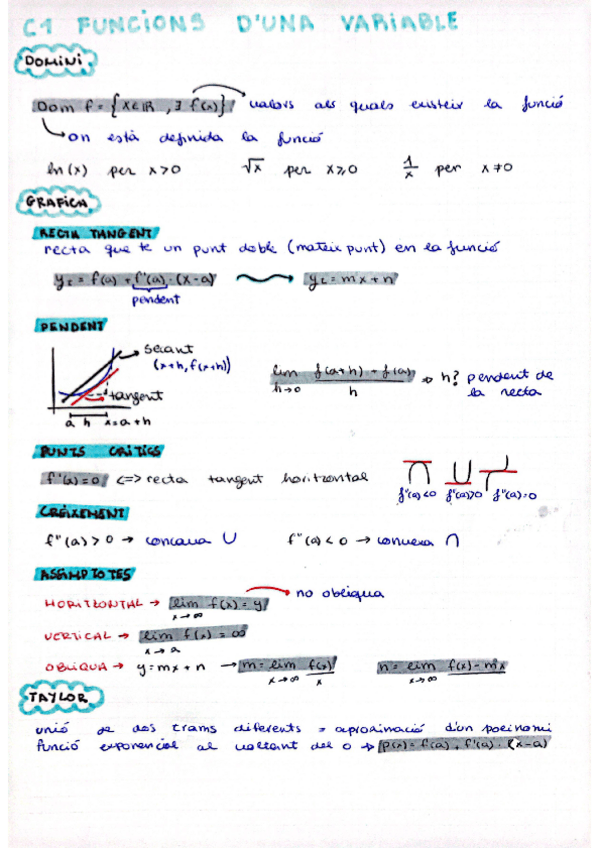 C1 FUNCIONS D'UNA VARIABLE
DOMINI
Dom f = {x∈ℝ, ∃ f(x)} valors als quals existeix la funció
on està definida la funció
ln(x) per x>0 √x per x≥0 1/x per x≠0
GRAFICA
RECTA TANGENT
recta que té un punt doble (mateix punt) en la funció
y_t = f(a) + f'(a)·(x-a) y_t = mx+n
pendent
PENDENT
secant
(x+h, f(x+h))
tangent
a h x=a+h
lim h→0 f(a+h) - f(a) / h → h? pendent de
la recta
PUNTS CRÍTICS
f'(a)=0 <=> recta tangent horitzontal
f''(a)<0 f''(a)>0 f''(a)=0
CREIXEMENT
f''(a)>0 → concava ∪ f''(a)<0 → convexa ∩
ASSIMPTOTES
HORITZONTAL → lim x→∞ f(x) = y no obliqua
VERTICAL → lim x→a f(x) = ∞
OBLIQUA → y=mx+n → m= lim x→∞ f(x)/x n= lim x→∞ f(x)-mx
TAYLOR
unió de dos trams diferents = aproximació d'un polinomi
funció exponencial al voltant del 0 → p(x)= f(a) + f'(a)·(x-a)